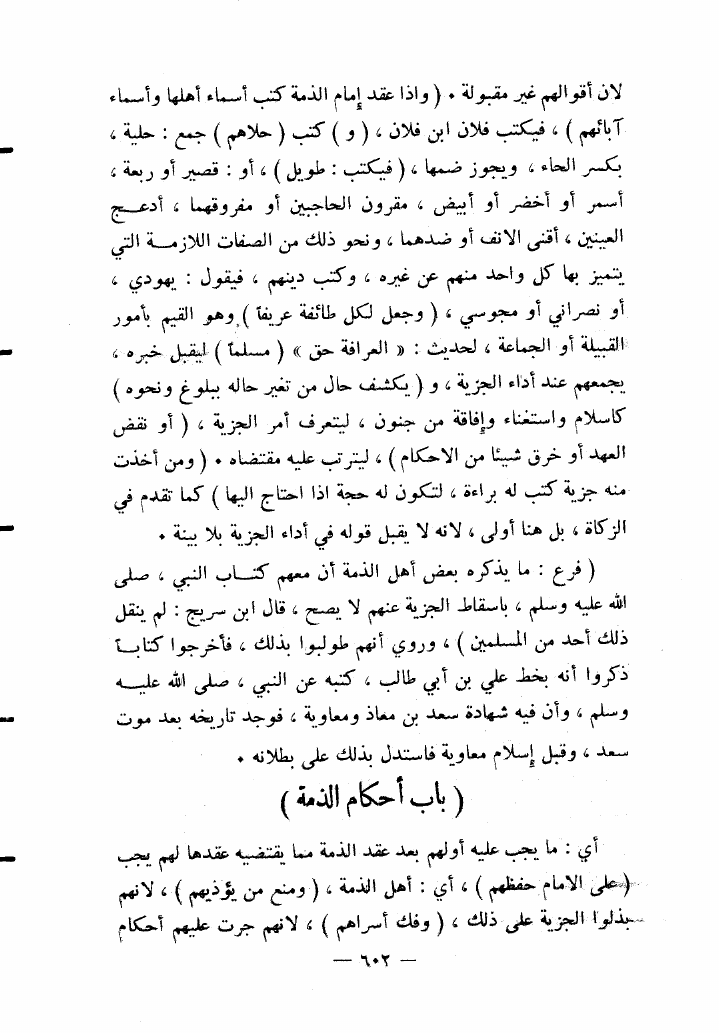 لان أقوالهم غير مقبولة . ( واذا عقد إمام الذمة كتب أسماء أهلها وأسماء
آبائهم ) ، فيكتب فلان ابن فلان ، ( و ) كتب ( حلاهم ) جمع : حلية ،
بكسر الحاء ، ويجوز ضمها ، ( فيكتب : طويل ) ، أو : قصير أو ربعة ،
أسمر أو أخضر أو أبيض ، مقرون الحاجبين أو مفروقهما ، أدعج
العينين ، أقنى الانف أو ضدهما ، ونحو ذلك من الصفات اللازمة التي
يتميز بها كل واحد منهم عن غيره ، وكتب دينهم ، فيقول : يهودي ،
أو نصراني أو مجوسي ، ( وجعل لكل طائفة عريفاً ) وهو القيم بأمور
القبيلة أو الجماعة ، لحديث : « العرافة حق » ( مسلماً ) ليقبل خبره ،
يجمعهم عند أداء الجزية ، و ( يكشف حال من تغير حاله ببلوغ ونحوه )
كاسلام واستغناء وإفاقة من جنون ، ليتعرف أمر الجزية ، ( أو نقض
العهد أو خرق شيئا من الاحكام ) ، ليترتب عليه مقتضاه . ( ومن أخذت
منه جزية كتب له براءة ، لتكون له حجة اذا احتاج اليها ) كما تقدم في
الزكاة ، بل هنا أولى ، لانه لا يقبل قوله في أداء الجزية بلا بينة .
( فرع : ما يذكره بعض أهل الذمة أن معهم كتاب النبي ، صلى
الله عليه وسلم ، باسقاط الجزية عنهم لا يصح ، قال ابن سريج : لم ينقل
ذلك أحد من المسلمين ) ، وروي أنهم طولبوا بذلك ، فأخرجوا كتاباً
ذكروا أنه بخط علي بن أبي طالب ، كتبه عن النبي ، صلى الله عليه
وسلم ، وأن فيه شهادة سعد بن معاذ ومعاوية ، فوجد تاريخه بعد موت
سعد ، وقبل إسلام معاوية فاستدل بذلك على بطلانه .
( باب أحكام الذمة )
أي : ما يجب عليه أولهم بعد عقد الذمة مما يقتضيه عقدها لهم يجب
( على الامام حفظهم ) ، أي : أهل الذمة ، ( ومنع من يؤذيهم ) ، لانهم
بذلوا الجزية على ذلك ، ( وفك أسراهم ) ، لانهم جرت عليهم أحكام
— ٦٠٢ —